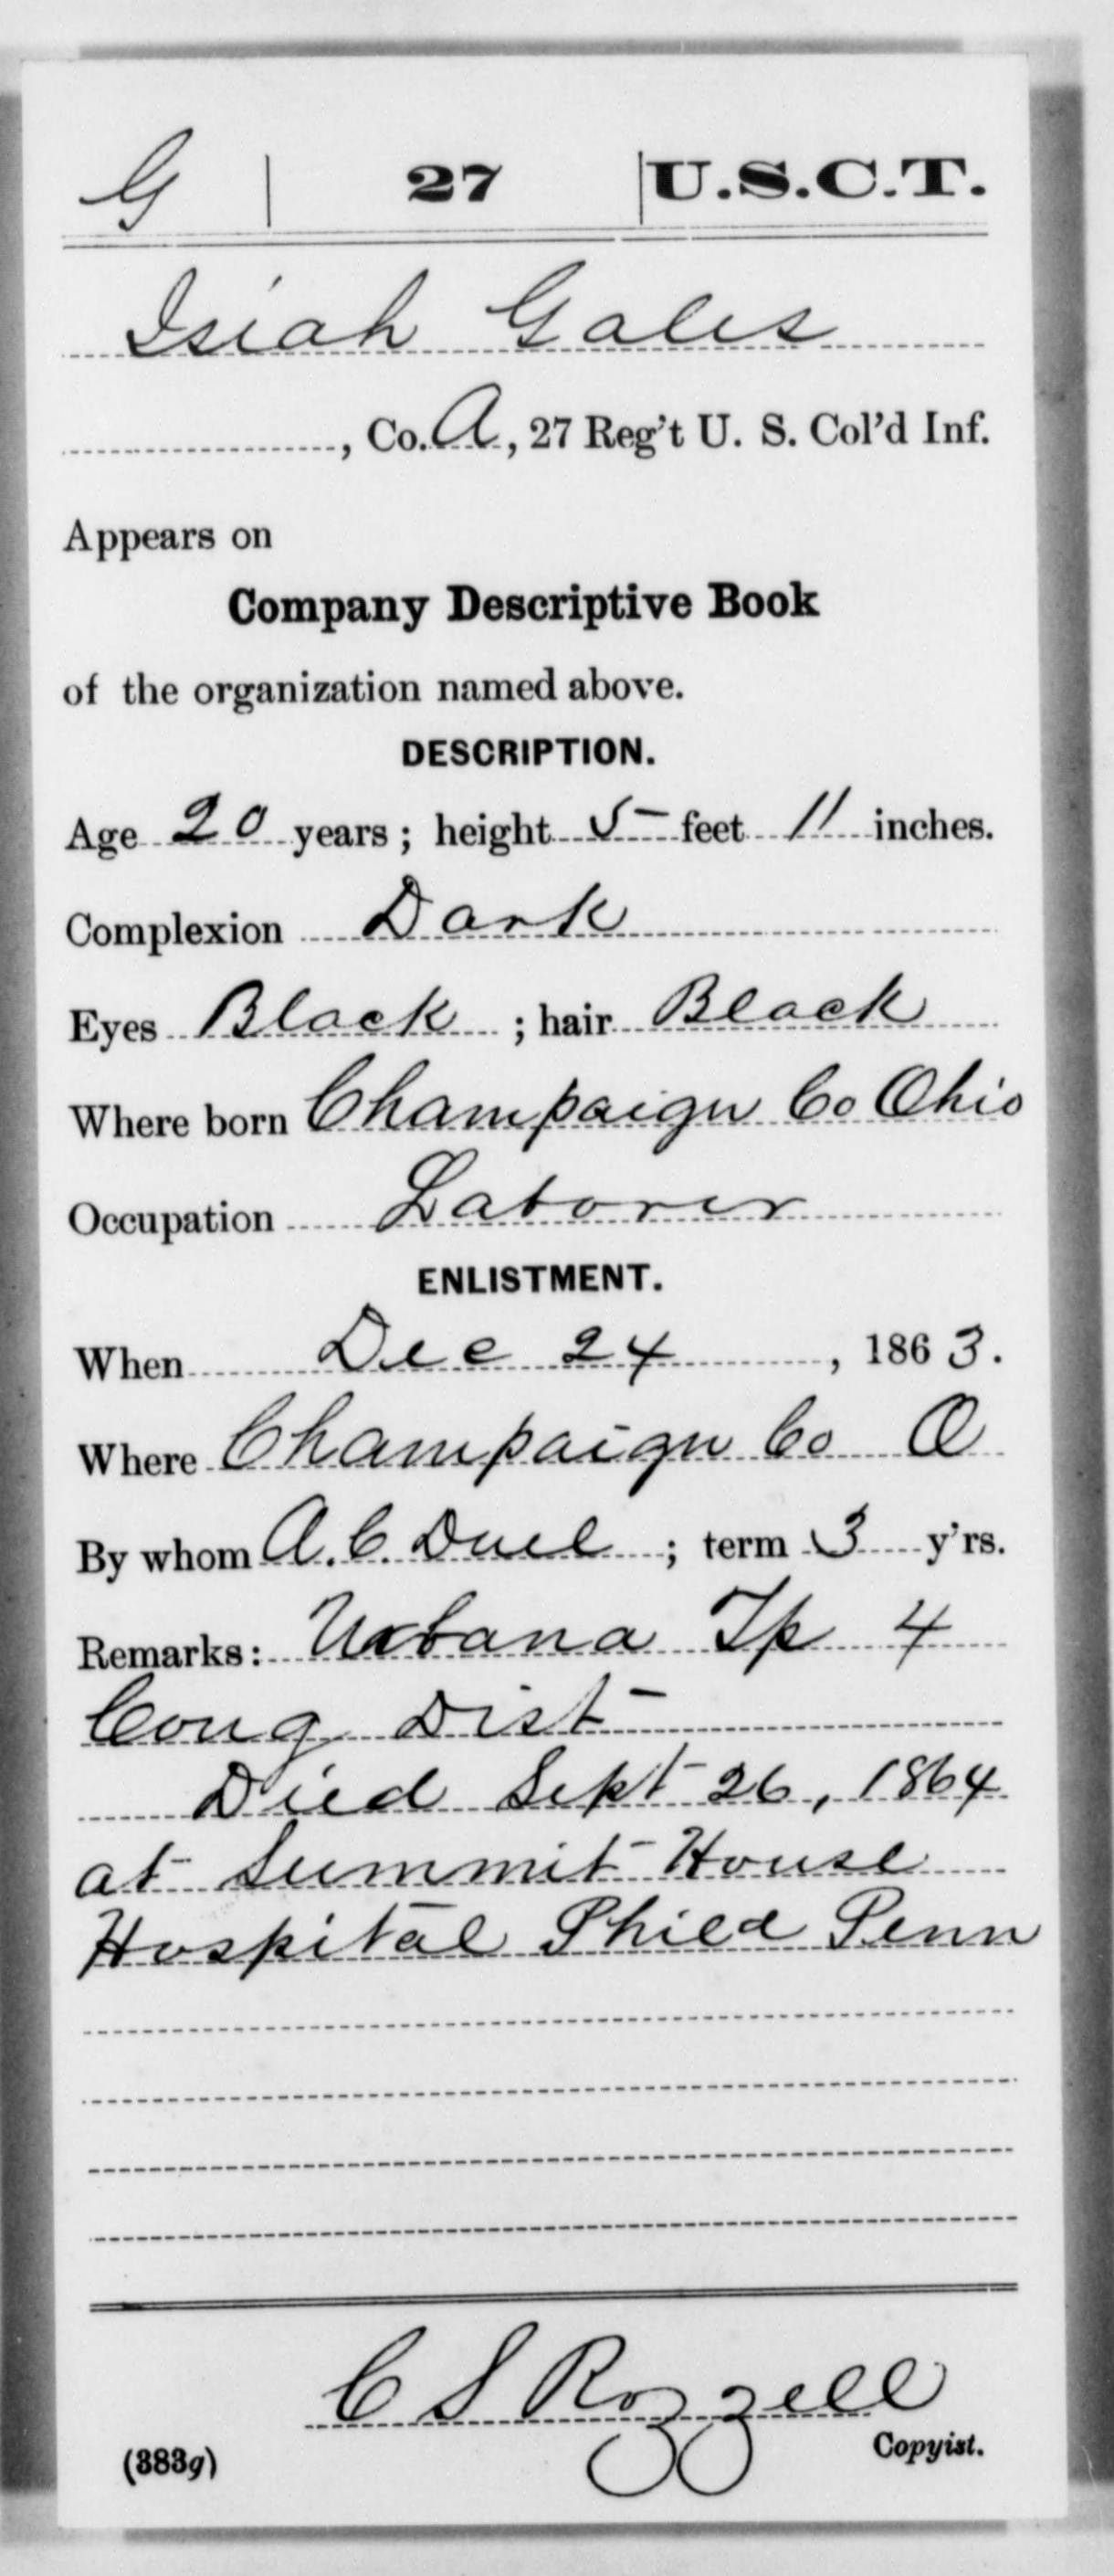 G | 27 | U.S.C.T.
Isiah Gales
, Co. A, 27 Reg't U. S. Col'd Inf.
Appears on
Company Descriptive Book
of the organization named above.
DESCRIPTION.
Age 20 years; height 5 feet 11 inches.
Complexion Dark
Eyes Black ; hair Black
Where born Champaign Co Ohio
Occupation Laborer
ENLISTMENT.
When Dec 24, 1863.
Where Champaign Co O
By whom A. C. Duel ; term 3 y'rs.
Remarks: Urbana Tp 4
Cong Dist
Died Sept 26, 1864
at Summit House
Hospital Phild Penn
C S Rozzell
Copyist.
(383g)